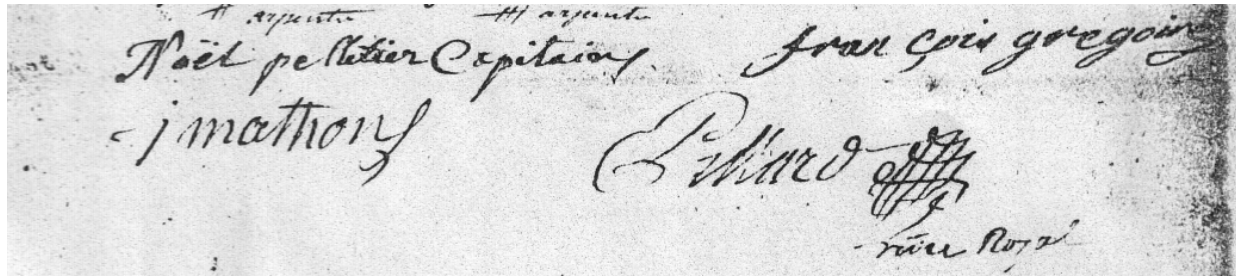 arpents arpents
Noël pelletier Capitaine françois gregoire
j mathon
Pillard
nôre Royal